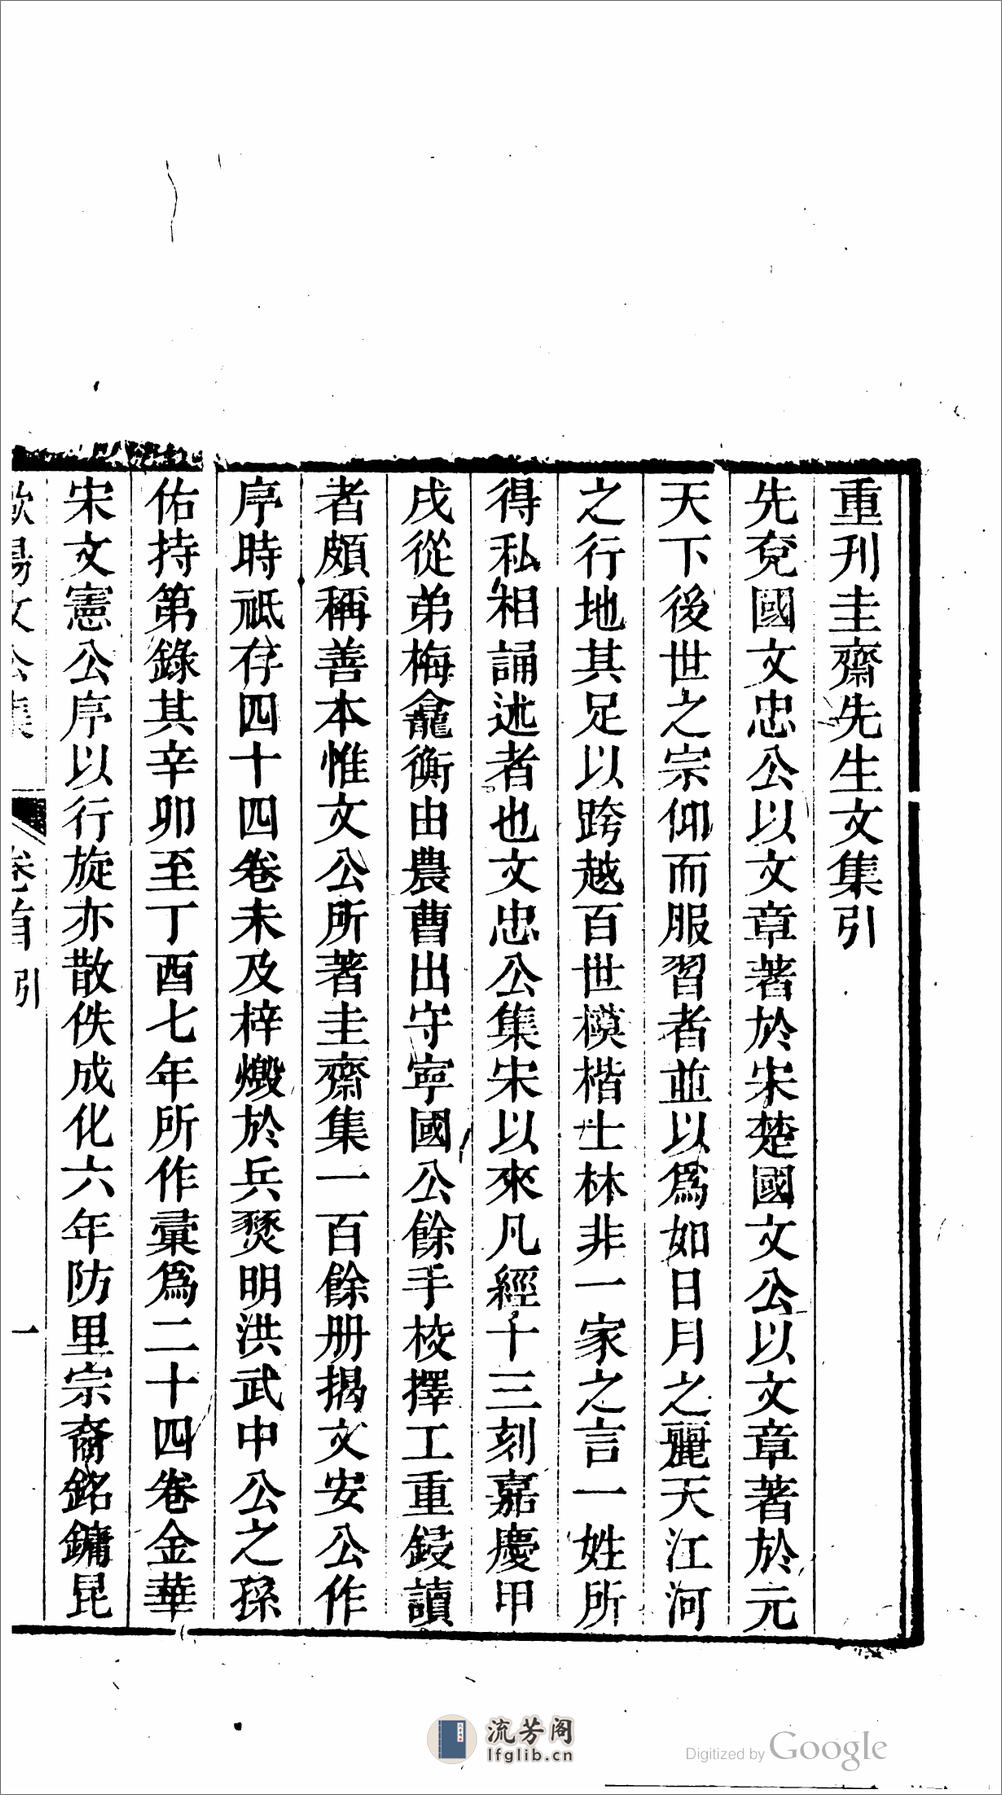 重刊圭齋先生文集引
先兗國文忠公以文章著於宋楚國文公以文章著於元
天下後世之宗仰而服習者並以爲如日月之麗天江河
之行地其足以跨越百世模楷士林非一家之言一姓所
得私相誦述者也文忠公集宋以來凡經十三刻嘉慶甲
戌從弟梅龕衡由農曹出守寧國公餘手校擇工重鋟讀
者頗稱善本惟文公所著圭齋集一百餘册揭文安公作
序時祗存四十四卷未及梓燬於兵燹明洪武中公之孫
佑持第錄其辛卯至丁酉七年所作彙爲二十四卷金華
宋文憲公序以行旋亦散佚成化六年防里宗裔銘鏞昆
歐陽文公集 卷首 引 一
流芳阁
lfglib.cn
Digitized by Google